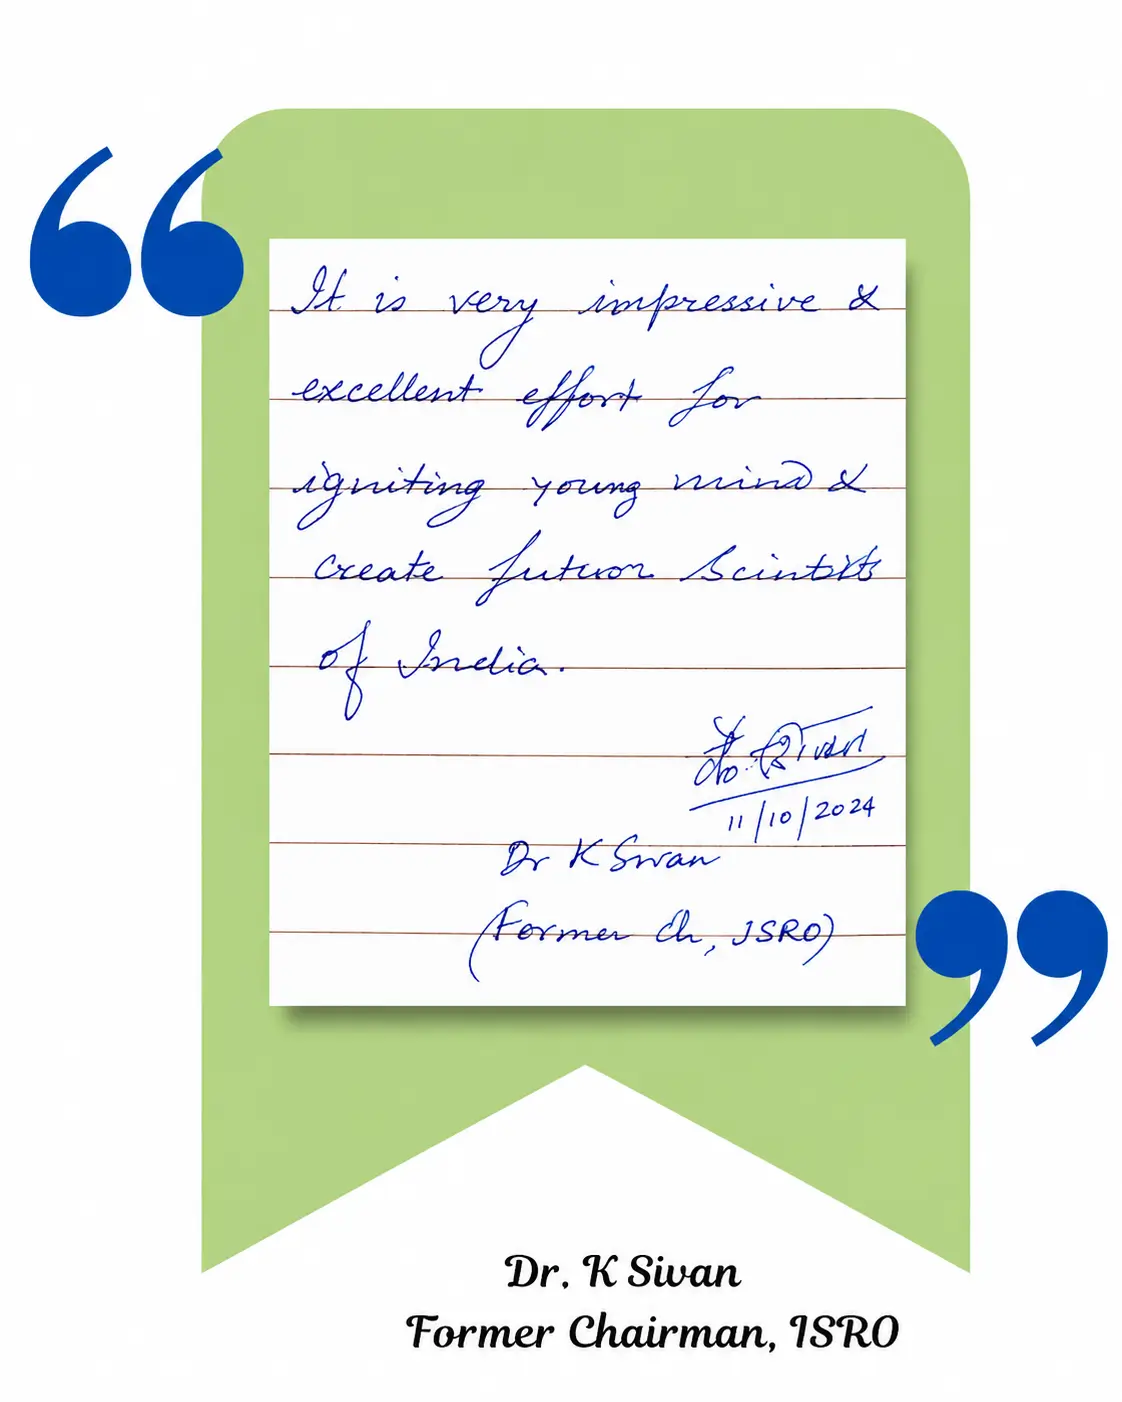 It is very impressive &
excellent effort for
igniting young mind &
create future Scintists
of India.
11/10/2024
Dr K Sivan
(Former Ch, ISRO)
Dr. K Sivan
Former Chairman, ISRO